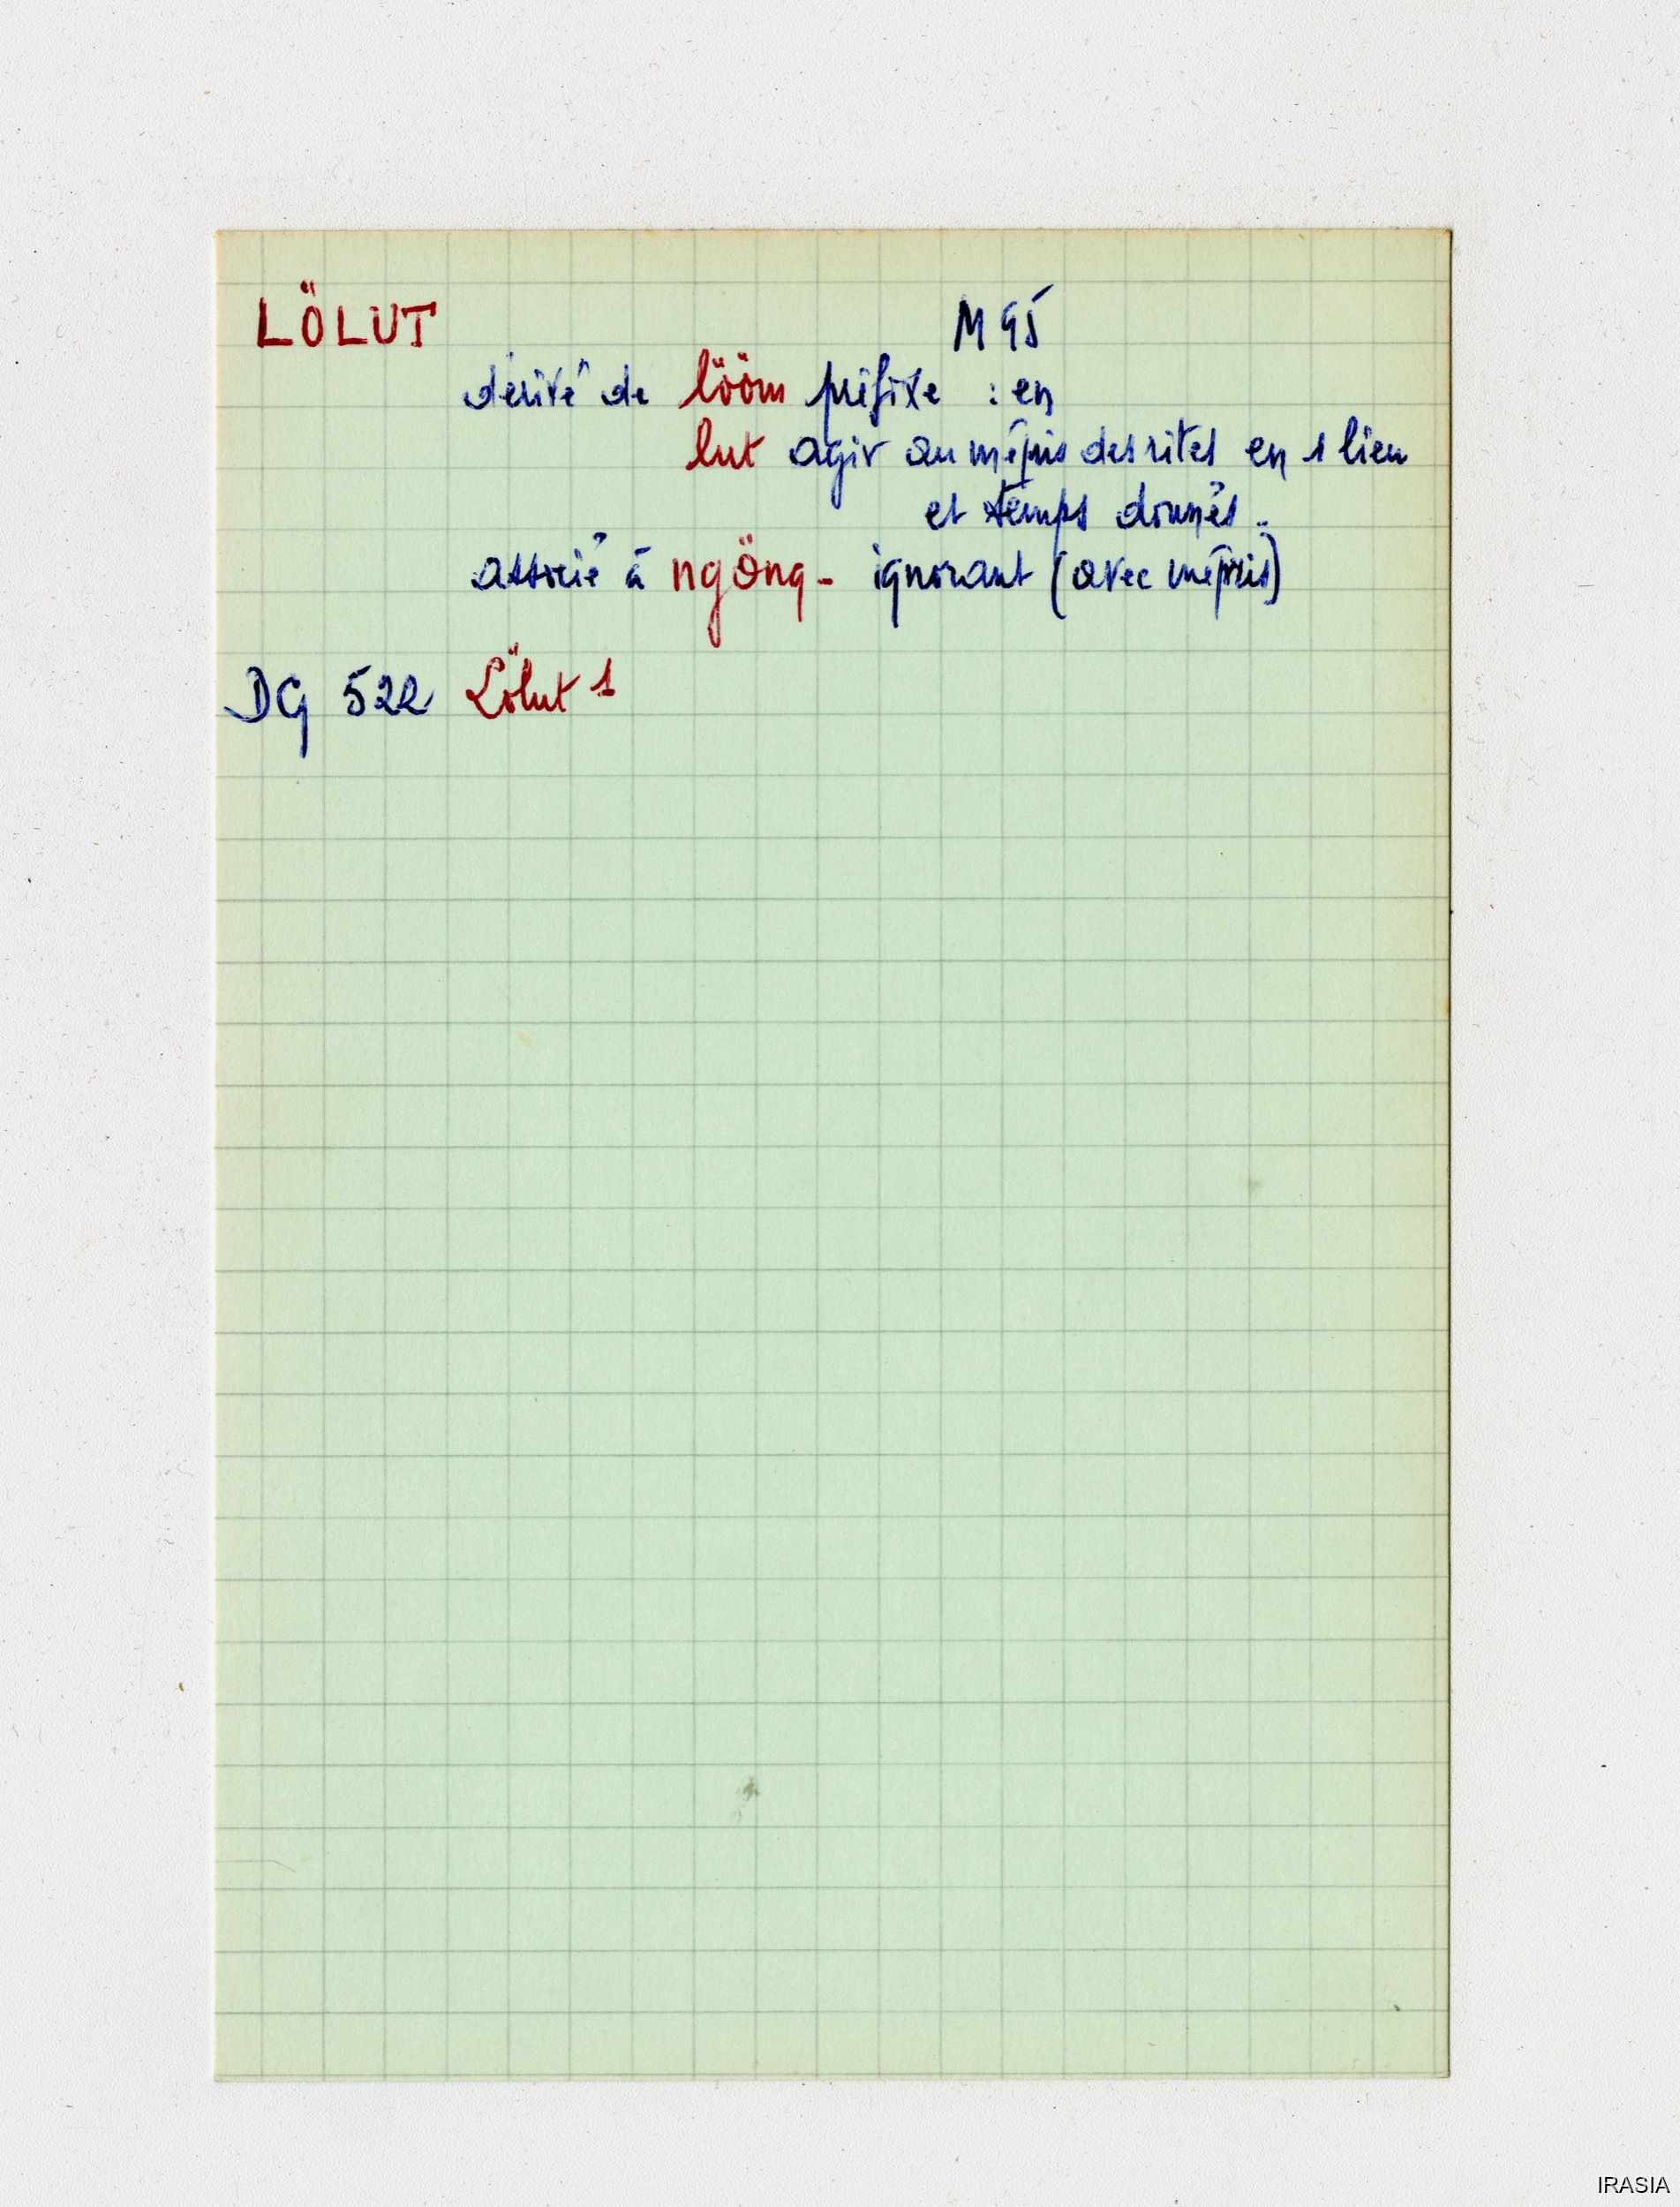 LÖLUT M 95
dérivé de lööm préfixe : en
lut agir au mépris des rites en 1 lieu
et temps donnés..
associé à ngöng - ignorant (avec mépris)
DG 522 Lölut 1
IRASIA